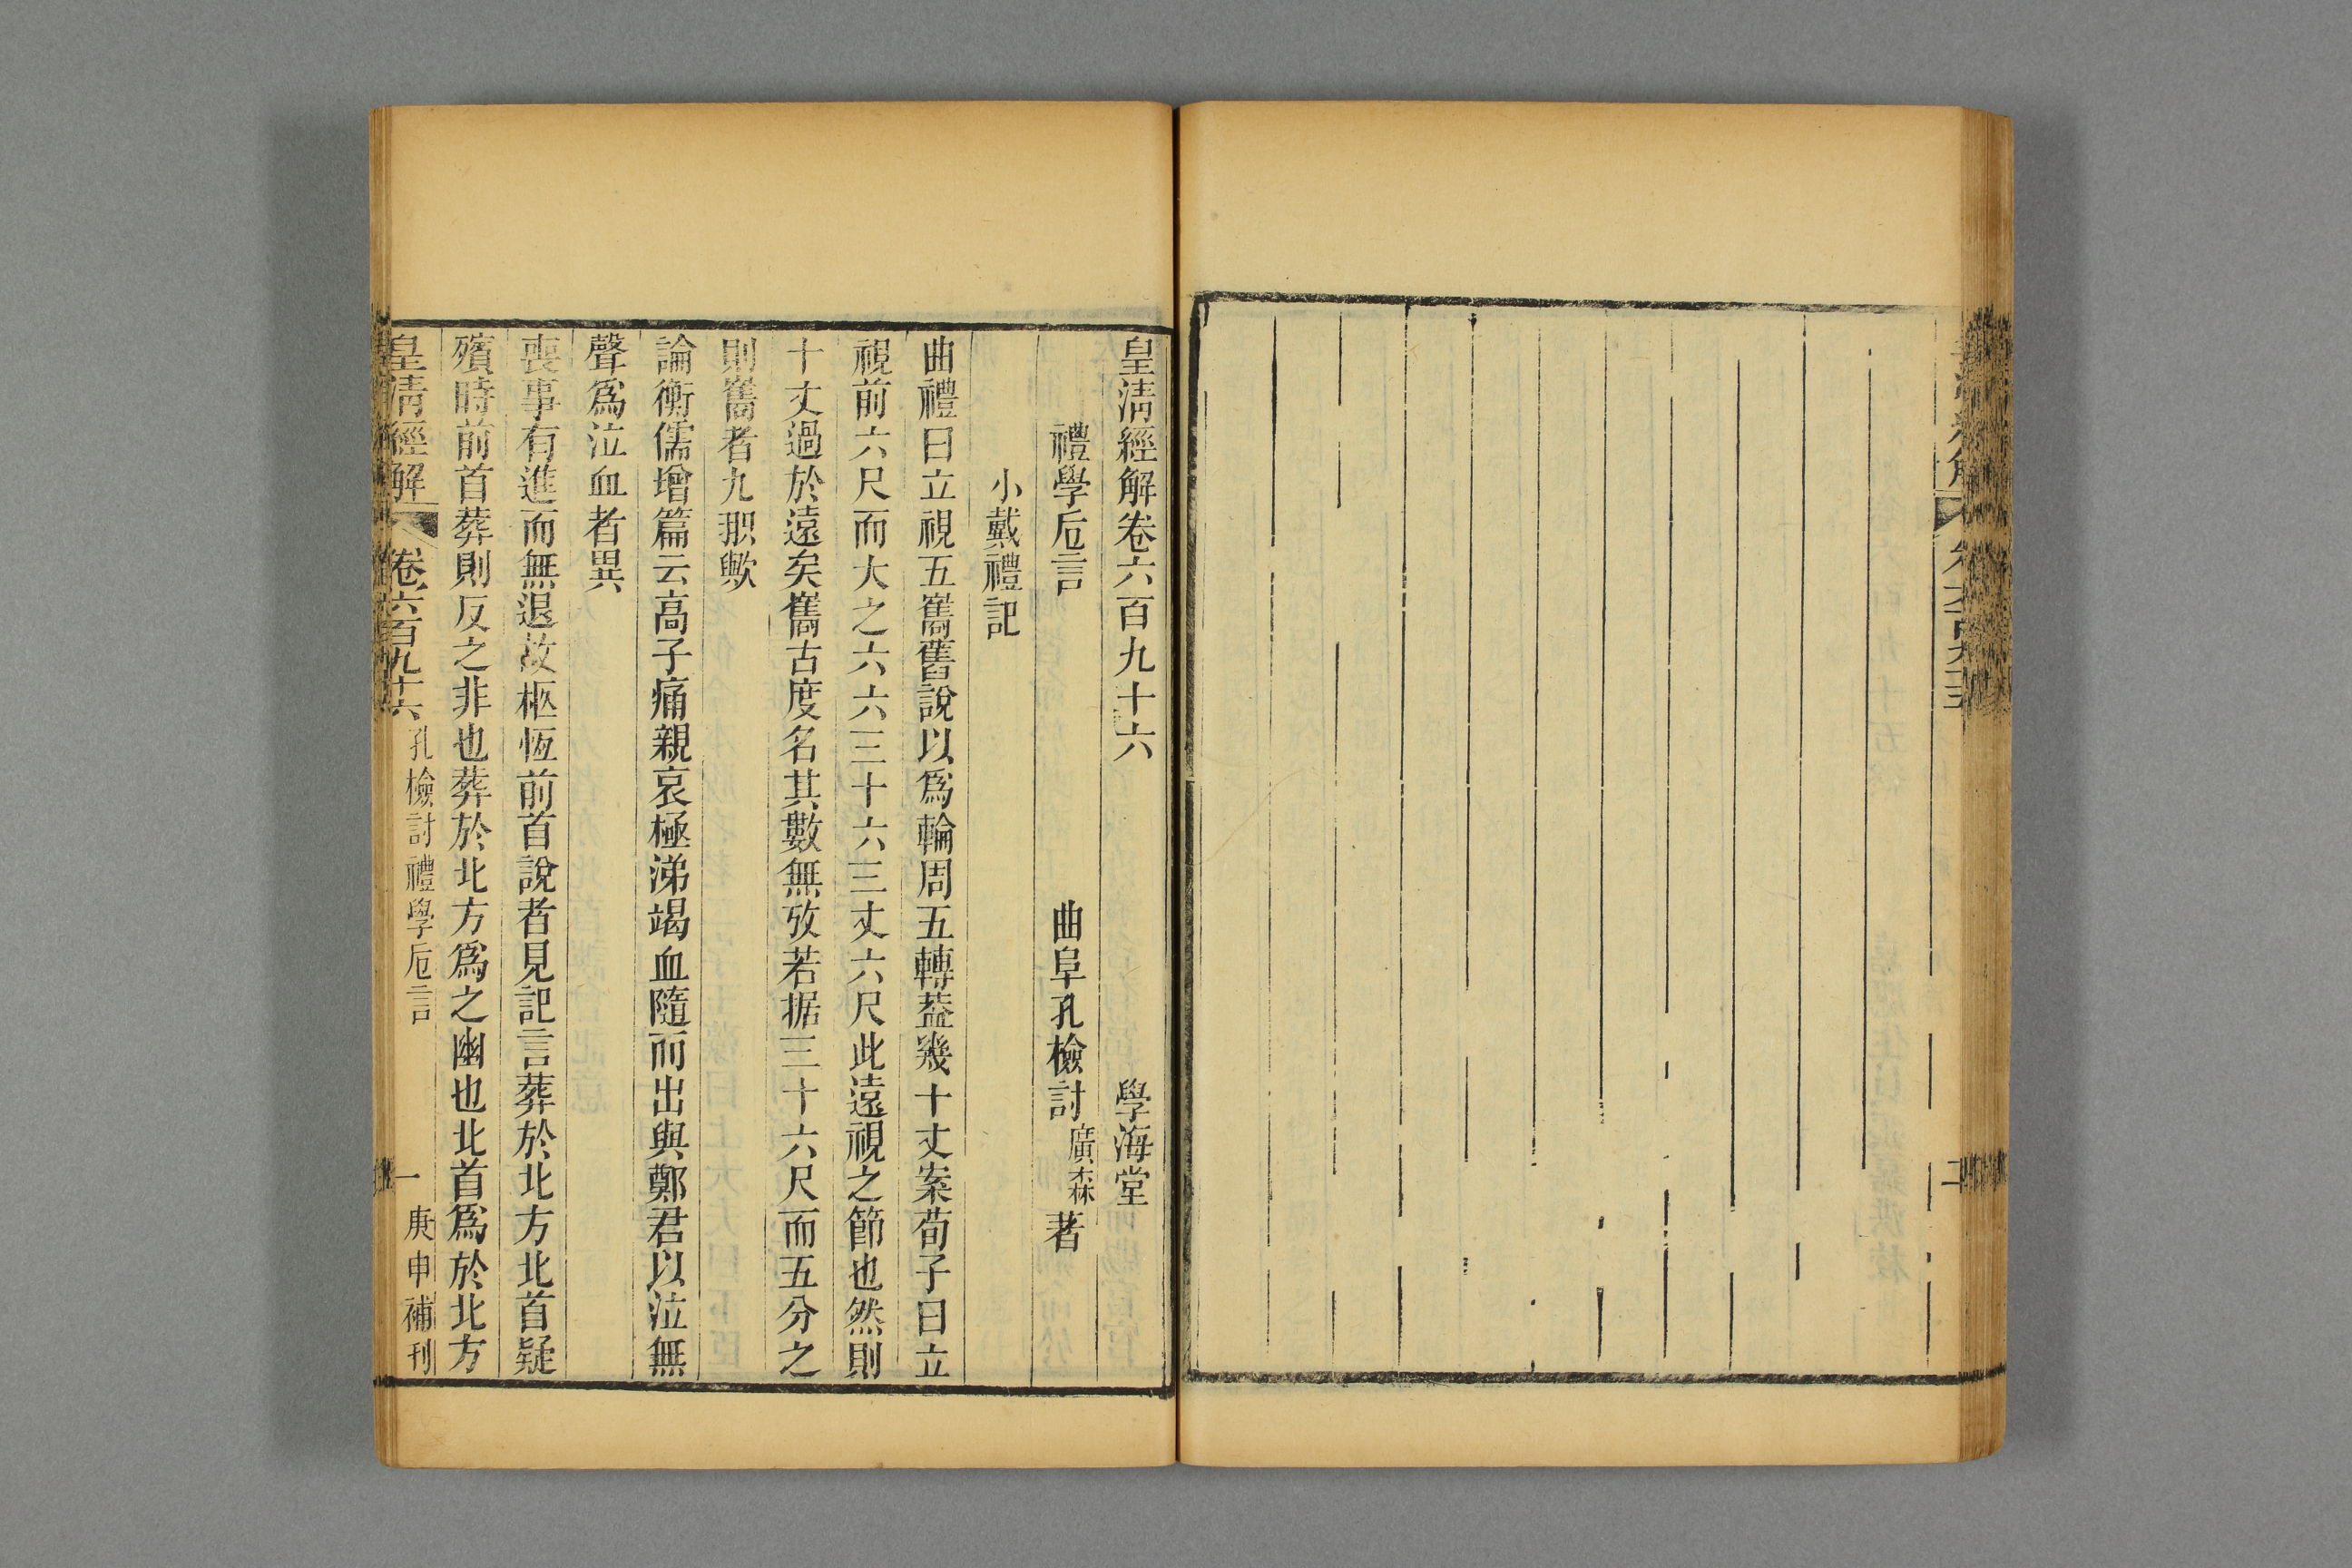 皇清經解卷六百九十六 學海堂
禮學卮言 曲阜孔檢討廣森著
小戴禮記
曲禮曰立視五巂舊說以爲輪周五轉葢幾十丈案荀子曰立
視前六尺而大之六六三十六三丈六尺此遠視之節也然則
十丈過於遠矣巂古度名其數無攷若据三十六尺而五分之
則巂者九咫歟
論衡儒增篇云高子痛親哀極涕竭血隨而出與鄭君以泣無
聲爲泣血者異
喪事有進而無退故柩恆前首說者見記言葬於北方北首疑
殯時前首葬則反之非也葬於北方爲之幽也北首爲於北方
皇清經解 卷六百九十六 孔檢討禮學卮言 一 庚申補刊